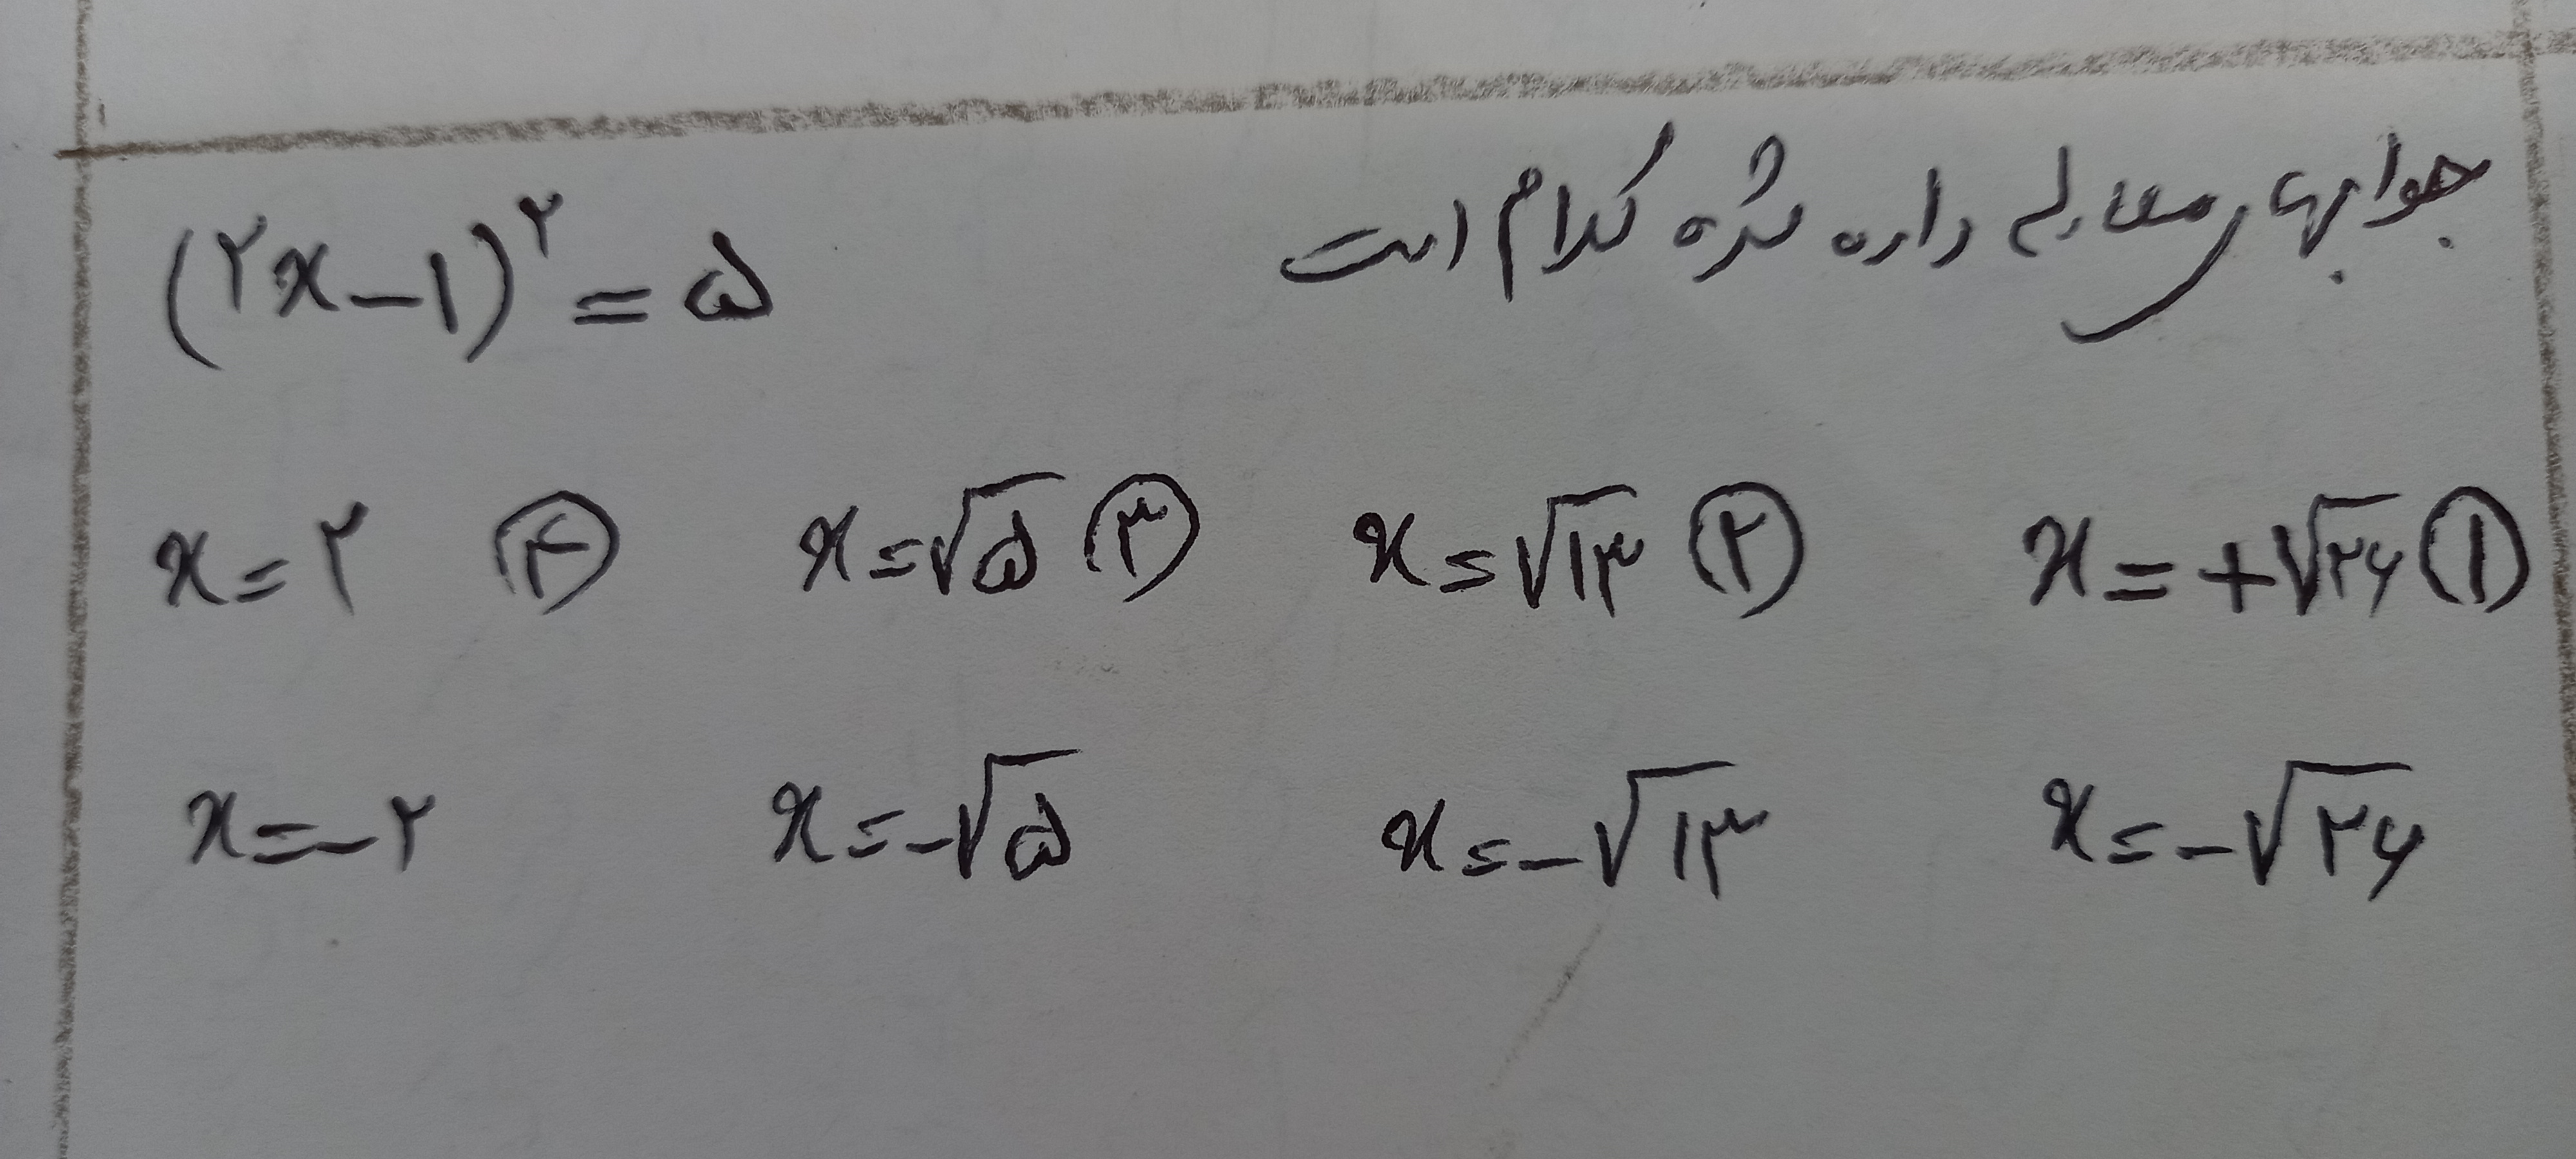 جوابهای معادله داده شده کدام است
(۲x-۱)^۲ = ۵
① x=+√۲۶ ② x=√۱۳ ③ x=√۵ ④ x=۲
x=-√۲۶ x=-√۱۳ x=-√۵ x=-۲